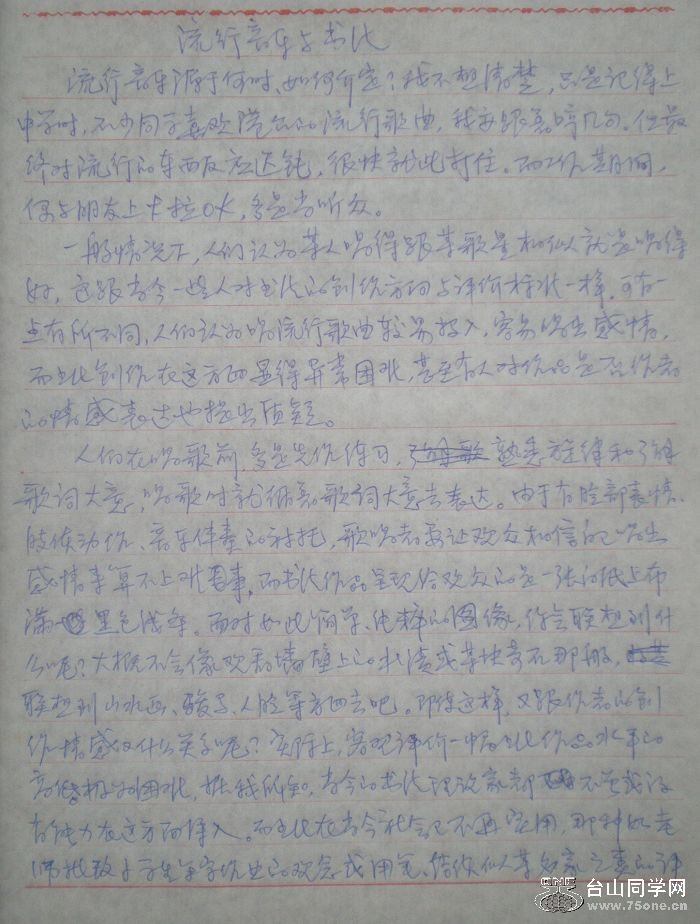 流行音乐与书法
流行音乐源于何时、如何介定?我不想清楚,只是记得上
中学时,不少同学喜欢学的流行歌曲,我亦跟着哼几句。但最
终对流行的东西反应迟钝,很快就此打住。而工作期间,
偶与朋友上卡拉OK,多是当听众。
一般情况下,人们认为某人唱得跟某歌星相似就是唱得
好,这跟当今一些人对书法的创作方向与评价标准一样。可有一
点有所不同,人们认为唱流行歌曲较易投入,容易唱出感情,
而书法创作在这方面显得异常困难,甚至有人对作品是否作者
的情感表达也提出质疑。
人们在唱歌前,多是先作练习,熟悉旋律和
歌词大意,唱歌时就循着歌词大意去表达。由于有脸部表情、
肢体动作、音乐伴奏的衬托,歌唱者要让观众相信的唱出
感情来算不上难事,而书法作品呈现给观众的是一张白纸上布
满黑色线条。面对如此简单、纯粹的图像,你会联想到什
么呢?大概不会像观看墙壁上的水渍或某块奇石那般,
联想到山水画、骏马、人脸等方面去吧。即使这样,又跟作者的创
作情感有什么关系呢?实际上,客观评价一件书法作品水平的
高低极为困难,据我所知,当今的书法理论家都不愿或没
有能力在这方面深入。而书法在当今社会已不再实用,那种如老
师批改小学生写字作业的观念或用笔、结体似某名家之类的评
台山同学网
www.75one.cn